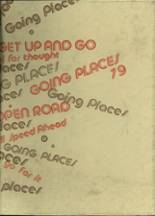 Going Places
GET UP AND GO
for thought
laces
G PLACES
GOING PLACES
79
aces
Going Places
OPEN ROAD
Speed Ahead
laces
GOING PLACES
go for it
places